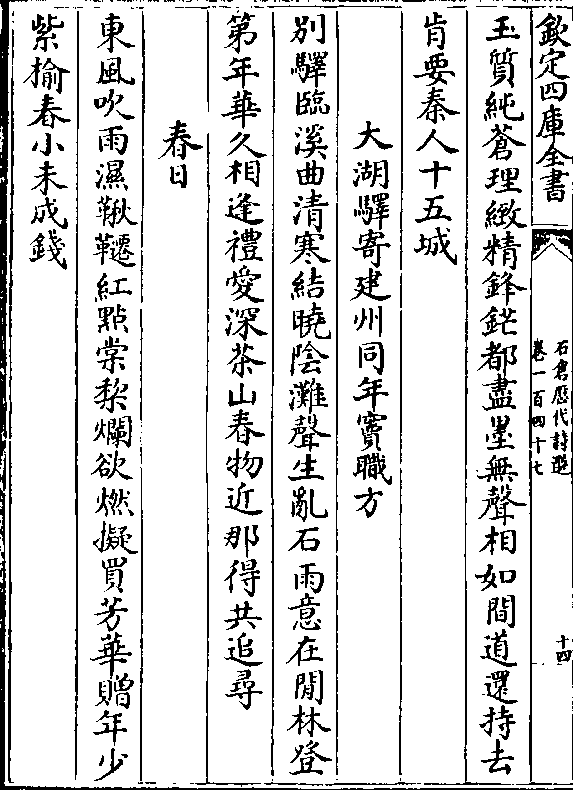 欽定四庫全書
石倉歷代詩選
卷一百四十七
十四
玉質純蒼理緻精鋒鋩都盡墨無聲相如間道還持去
肯要秦人十五城
大湖驛寄建州同年竇職方
別驛臨溪曲清寒結曉陰灘聲生亂石雨意在閒林登
第年華久相逢禮愛深茶山春物近那得共追尋
春日
東風吹雨濕鞦韆紅點棠梨爛欲燃擬買芳華贈年少
紫榆春小未成錢